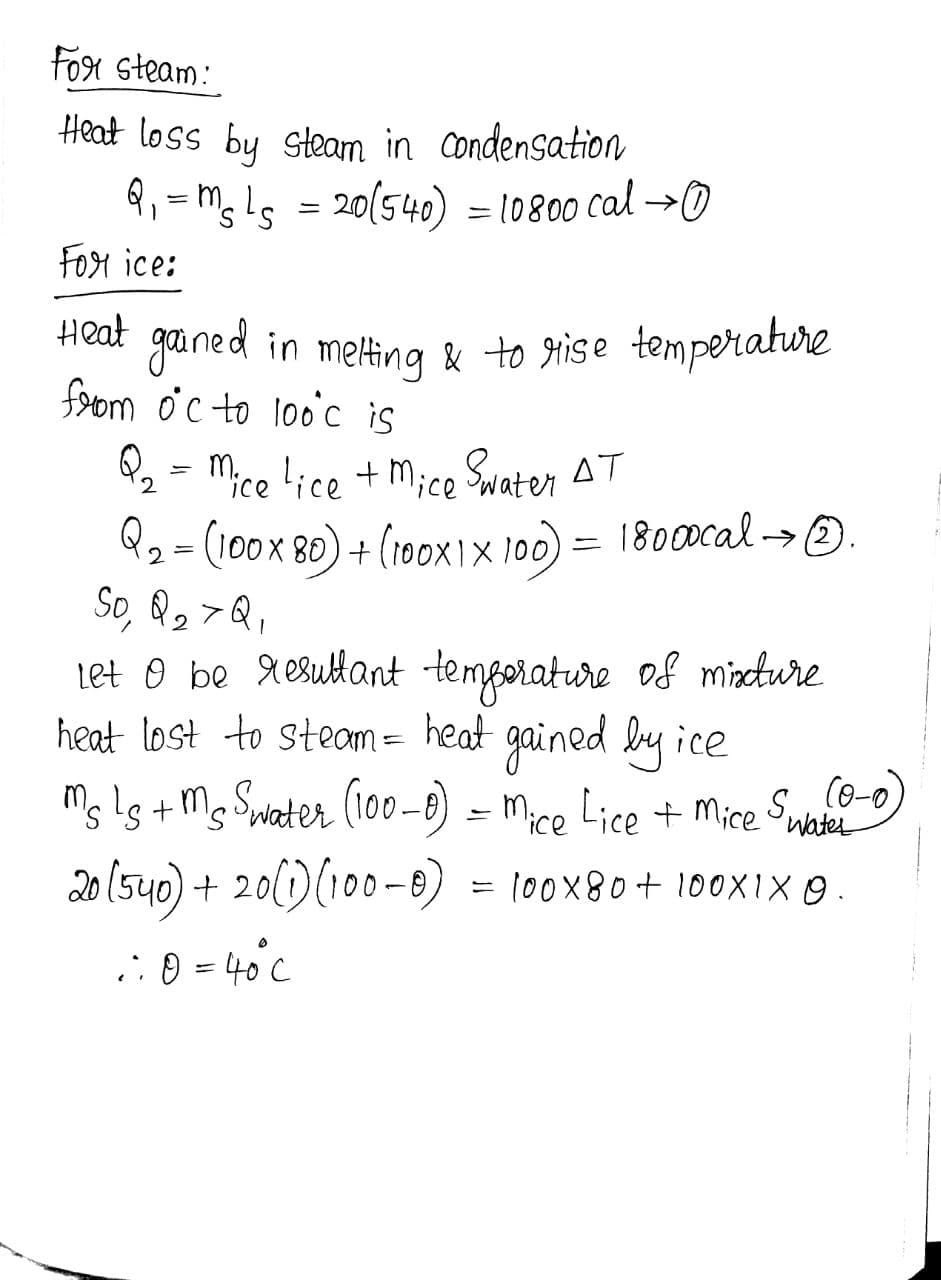 For steam:
Heat loss by steam in condensation
Q₁ = mₛLₛ = 20(540) = 10800 cal → ①
For ice:
Heat gained in melting & to rise temperature
from 0°C to 100°C is
Q₂ = m_ice L_ice + m_ice S_water ΔT
Q₂ = (100 x 80) + (100x1x100) = 18000cal → ②.
So, Q₂ > Q₁
Let θ be resultant temperature of mixture
heat lost to steam = heat gained by ice
mₛLₛ + mₛ S_water (100-θ) = m_ice L_ice + m_ice S_water (θ-0)
20(540) + 20(1)(100-θ) = 100x80 + 100x1xθ.
∴ θ = 40°C